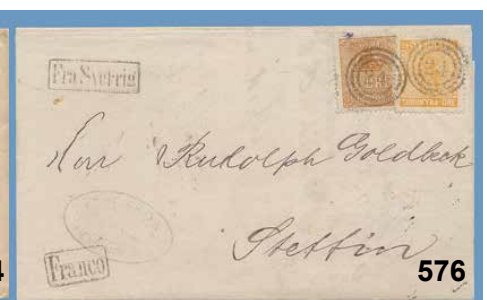 Fra Sverrig
Herr Rudolph Goldbeck
Stettin
Franco
4
576